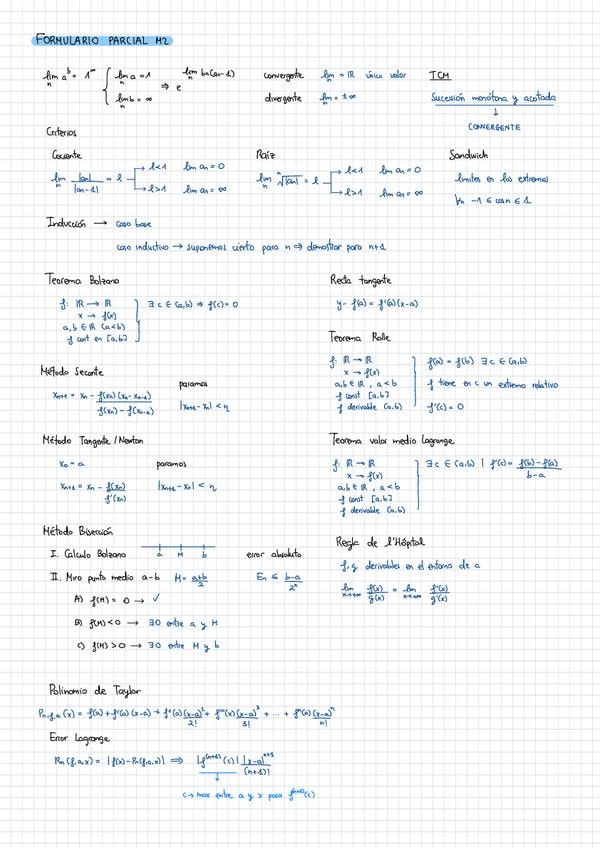 FORMULARIO PARCIAL M2
lim_n a^b = 1^∞ { lim_n a = 1 lim_n b = ∞ ⇒ e^{lim_n bn(an-1)}
convergente lim_n = ℝ único valor
divergente lim_n = ±∞
TCM
Sucesión monótona y acotada
↓
CONVERGENTE
Criterios
Cociente
lim_n |an|/|an-1| = l → l<1 lim an = 0
→ l>1 lim an = ∞
Raíz
lim_n ⁿ√|an| = l → l<1 lim an = 0
→ l>1 lim an = ∞
Sandwich
límites en los extremos
∀n -1 ≤ cosn ≤ 1
Inducción → caso base
caso inductivo → suponemos cierto para n ⇒ demostrar para n+1
Teorema Bolzano
f: ℝ → ℝ
x → f(x)
a,b ∈ ℝ (a<b)
f cont en [a,b]
∃ c ∈ (a,b) ⇒ f(c) = 0
Recta tangente
y - f(a) = f'(a)(x-a)
Teorema Rolle
f: ℝ → ℝ
x → f(x)
a,b ∈ ℝ, a<b
f const [a,b]
f derivable (a,b)
f(a) = f(b) ∃ c ∈ (a,b)
f tiene en c un extremo relativo
f'(c) = 0
Método Secante
xn+1 = xn - f(xn)(xn-xn-1)/f(xn)-f(xn-1)
paramos
|xn+1 - xn| < η
Método Tangente/Newton
x0 = a
xn+1 = xn - f(xn)/f'(xn)
paramos
|xn+1 - xn| < η
Teorema valor medio Lagrange
f: ℝ → ℝ
x → f(x)
a,b ∈ ℝ, a<b
f const [a,b]
f derivable (a,b)
∃ c ∈ (a,b) | f'(c) = f(b)-f(a)/b-a
Método Bisección
I. Cálculo Bolzano a M b
error absoluto
II. Miro punto medio a-b M = a+b/2
En ≤ b-a/2ⁿ
A) f(M) = 0 → ✓
B) f(M) < 0 → ∃0 entre a y M
C) f(M) > 0 → ∃0 entre M y b
Regla de l'Hôpital
f,g derivables en el entorno de a
lim x→∞ f(x)/g(x) = lim x→∞ f'(x)/g'(x)
Polinomio de Taylor
Pn,f,a(x) = f(a) + f'(a)(x-a) + f''(a)(x-a)²/2! + f'''(x)(x-a)³/3! + ... + fⁿ(a)(x-a)ⁿ/n!
Error Lagrange
Rn(f,a,x) = |f(x) - Pn(f,a,x)| ⇒ |f^(n+1)(c)| |x-a|^n+1/(n+1)!
↓
c → max entre a y x para f^(n+1)(c)